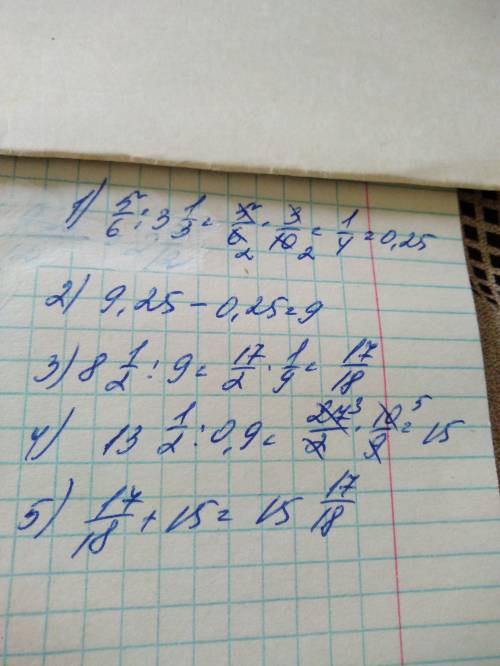 1) 5/6 : 3 1/3 = 5/6 2 · 3/10 2 = 1/4 = 0,25
2) 9,25 - 0,25 = 9
3) 8 1/2 : 9 = 17/2 · 1/9 = 17/18
4) 13 1/2 : 0,9 = 27 3/2 · 10 5/9 = 15
5) 17/18 + 15 = 15 17/18